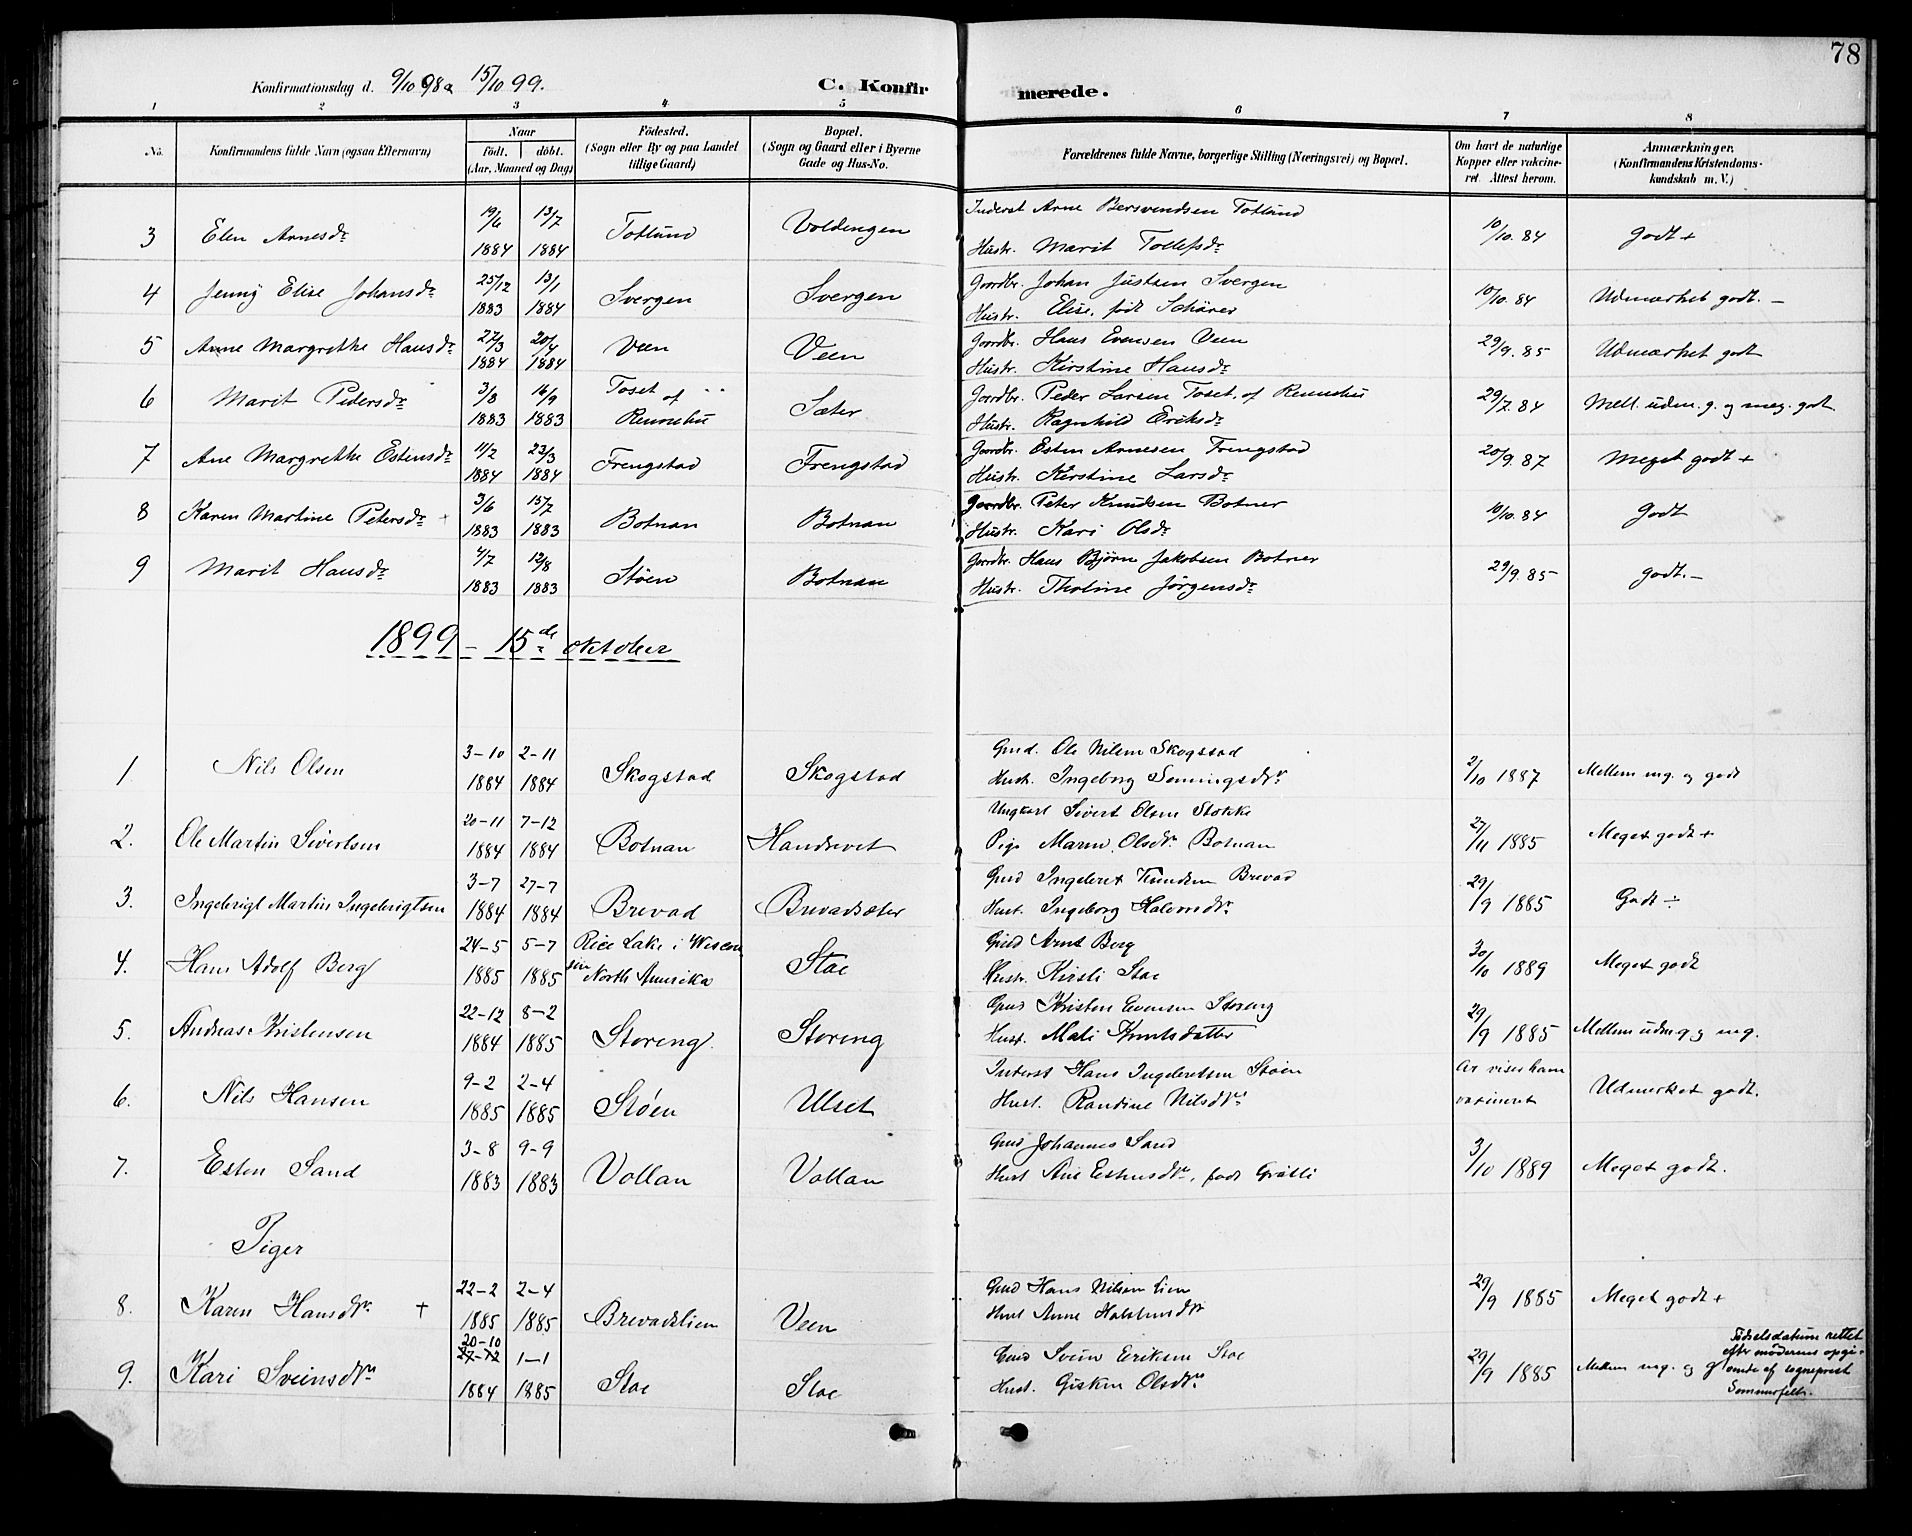 78
Konfirmationsdag d. 9/10 98 15/10 99. C. Konfirmerede.
1 2 3 4 5 6 7 8
No. Konfirmandens fulde Navn (ogsaa Efternavn) Naar födt. döbt. (Aar, Maaned og Dag) Födested. (Sogn eller By og paa Landet tillige Gaard) Bopæl. (Sogn og Gaard eller i Byerne Gade og Hus-No. Forældrenes fulde Navne, borgerlige Stilling (Næringsvei) og Bopæl. Om havt de naturlige Kopper eller vakcineret. Attest herom. Anmærkninger. (Konfirmandens Kristendomskundskab m. V.)
3 Elen Arnesdr 19/6 1884 13/7 1884 Totlund Voldengen Inderst Arne Bersvendsen Totlund
Hustr. Marit Tollefsdr 10/10. 84 Godt +
4 Jenny Elise Johansdr 25/12 1883 13/1 1884 Svergen Svergen Gaardbr. Johan Justsen Svergen
Hustr. Elise, født Schärer 10/10. 84 Udmærket godt. –
5 Anne Margrethe Hansdr 27/3 1884 20/4 1884 Veen Veen Gaardbr. Hans Evensen Veen
Hustr. Kirstine Hansdr 29/9. 85 Udmærket godt
6 Marit Pedersdr 3/8 1883 16/9 1883 Toset af Rennebu Sæter Gaardbr. Peder Larsen Toset af Rennebu
Hustr. Ragnhild Eriksdr 29/7. 84 Mell. udm. g. og meg. godt
7 Ane Margrethe Estensdr 11/2 1884 23/3 1884 Frengstad Frengstad Gaardbr. Esten Arnesen Frengstad
Hustr. Kirstine Larsdr 20/9. 87 Meget godt +
8 Karen Martine Petersdr + 3/6 1883 15/7 1883 Botnan Botnan Gaardbr. Peter Knudsen Botner
Hustr. Kari Olsdr 10/10. 84 Godt
9 Marit Hansdr 4/7 1883 12/8 1883 Støen Botnan Gaardbr. Hans Bjørn Jakobsen Botner
Hustr. Tholine Jørgensdr 29/9. 85 Godt. –
1899 – 15de oktober
1. Nils Olsen 3–10 1884 2–11 1884 Skogstad Skogstad Gmd. Ole Nilsen Skogstad
Hust. Ingeborg Semingsdtr 2/10 1887 Mellem mg. og godt
2. Ole Martin Sivertsen 20–11 1884 7–12 1884 Botnan Handsvet Ungkarl Sivert Olsen Stokke
Pige Maren Olsdtr Botnan 27/11 1885 Meget godt +
3. Ingebrigt Martin Ingebrigtsen 3–7 1884 27–7 1884 Brevad Brevadsæter Gmd Ingebret Knudsen Brevad
Hust. Ingeborg 29/9 1885 Godt ÷
4. Hans Adolf Berg 24–5 1885 5–7 1885 Rice Lake i Wisconsin North Amerika Stae Gmd Arnt Berg
Hustr. Kirsti Stae 30/10 1889 Meget godt
5. Andreas Kristensen 22–12 1884 8–2 1885 Storeng Storeng Gmd Kristen Evensen Storeng
Hust. Mali Knutsdatter 29/9 1885 Mellem udm g og mg.
6. Nils Hansen 9–2 1885 2–4 1885 Støen Ulset Inderst Hans Ingebretsen Støen
Hust. Randine Nilsdtr Ar viser ham vaxineret Udmerket godt.
7. Esten Sand 3–8 1883 9–9 1883 Vollan Vollan Gmd Johannes Sand
Hust Ane Estensdtr, født Gråtli 3/10 1889 Meget godt.
Piger
8. Karen Hansdtr. + 22–2 1885 2–4 1885 Brevadslien Veen Gmd Hans Nilsen Lien
Hust Anne Halstensdtr 29/9 1885 Meget godt +
9. Kari Sveinsdtr 20–10 27–12 1884 1–1 1885 Stae Stae Gmd Svein Eriksen Stae
Hust. Gisken Olsdtr 29/9 1885 Mellem mg. og g
Fødselsdatum rettet
efter moderens opgi-
vende af sogneprest
Sommerfelt.